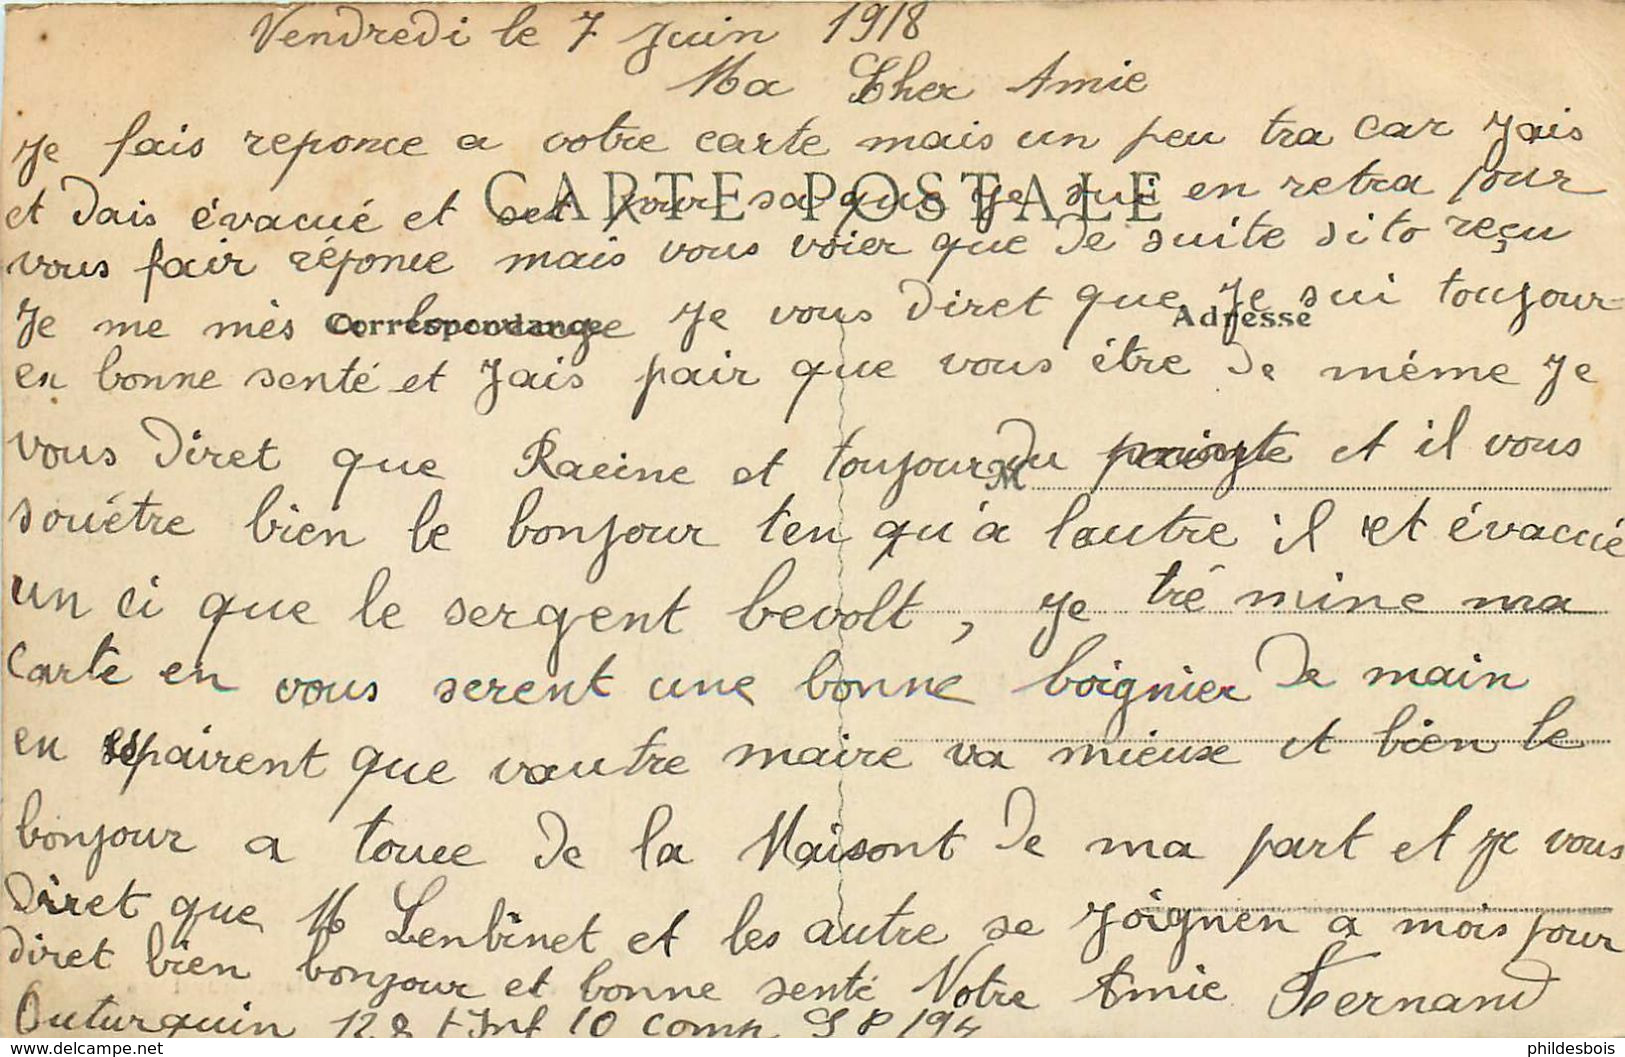 Vendredi le 7 Juin 1918
Ma Cher Amie
Je fais reponce a votre carte mais un peu tra car Jais
et dais évacué et set pour sa que je sui en retra pour
CARTE POSTALE
vous fair réponce mais vous voier que de suite sito reçu
Je me mès a louvrage Je vous diret que Je sui toujour
Correspondance
Adresse
en bonne senté et Jais pair que vous étre de méme Je
vous diret que Racine et toujour du et il vous
M
souétre bien le bonjour ten qu'a lautre il et évacué
un ci que le sergent bevolt, je tré mine ma
Carte en vous serent une bonne boignier de main
en espairent que vautre maire va mieux et bien le
bonjour a touce de la Maisont de ma part et je vous
diret que M Lenbinet et les autre se joignen a mois pour
diret bien bonjour et bonne senté Votre Amie Fernand
Outurquin 128 t Inf 10 comp S P 194
www.delcampe.net
phildesbois